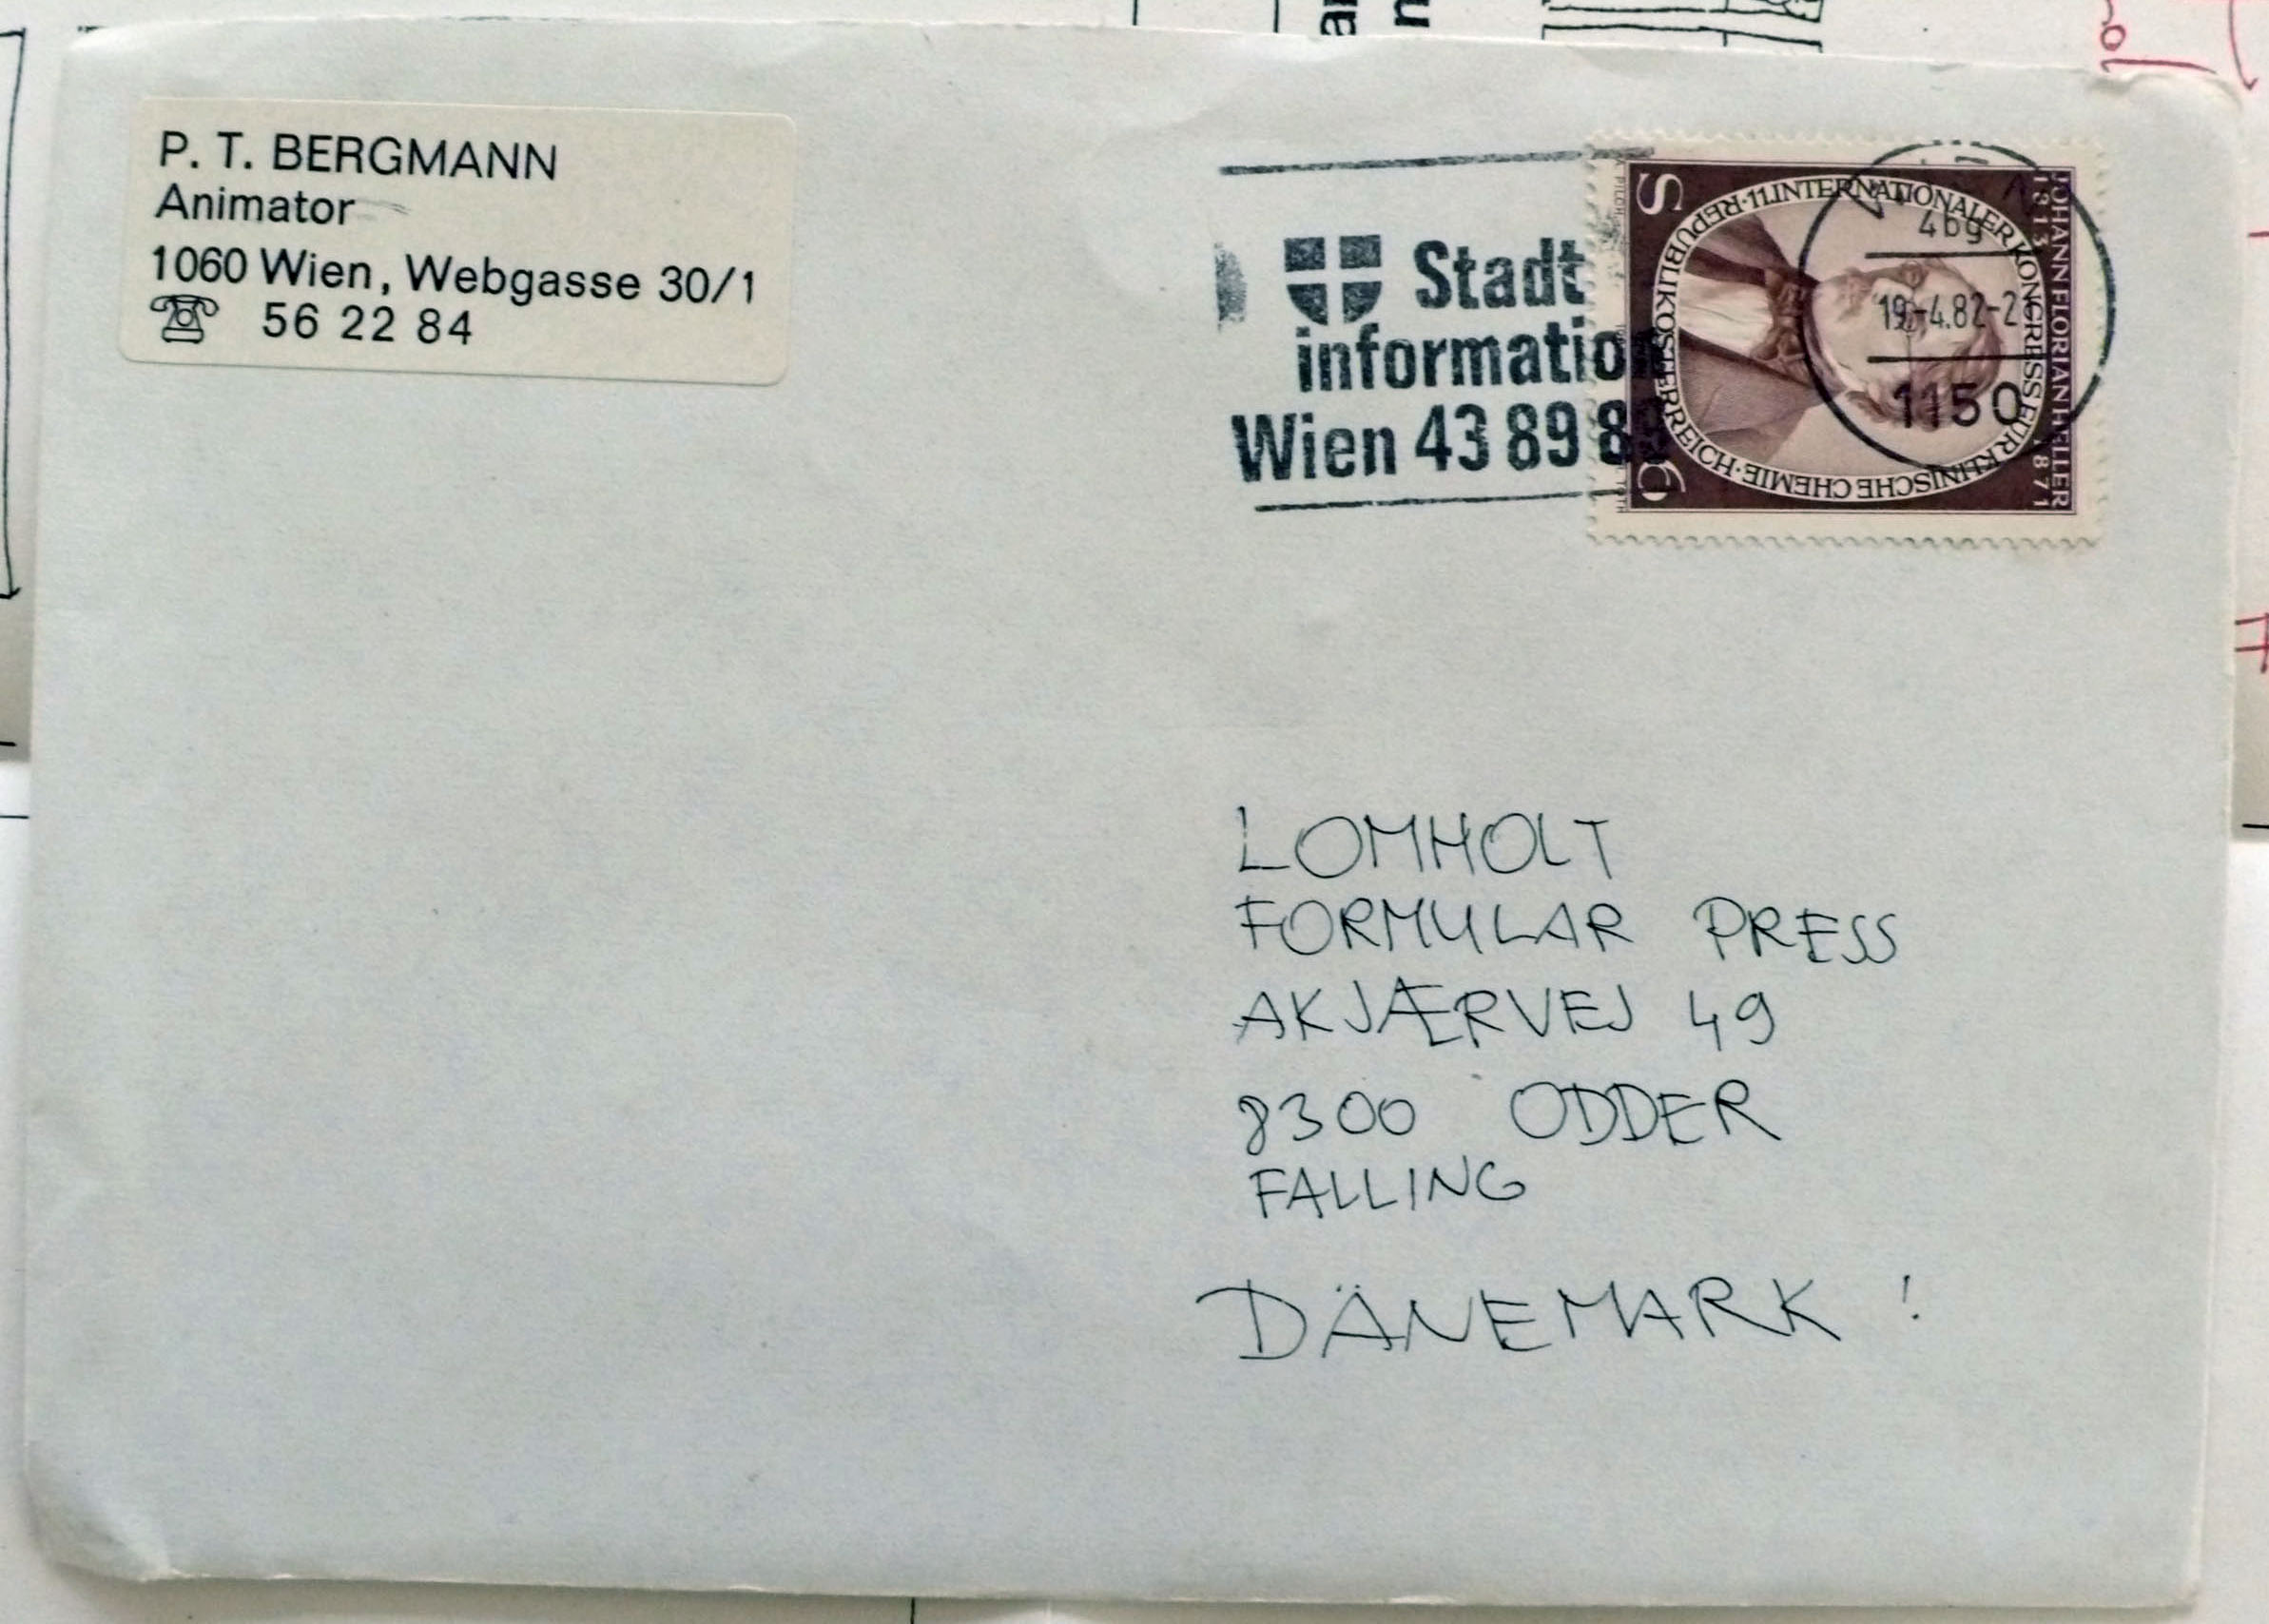 P. T. BERGMANN
Animator
1060 Wien, Webgasse 30/1
56 22 84
Stadt
information
Wien 43 89 8
S 6
REPUBLIK ÖSTERREICH · 11. INTERNATIONALER KONGRESS FÜR KLINISCHE CHEMIE ·
JOHANN FLORIAN HELLER
1813 1871
19.-4.82-2
1150
LOMHOLT
FORMULAR PRESS
AKJÆRVEJ 49
8300 ODDER
FALLING
DÄNEMARK !